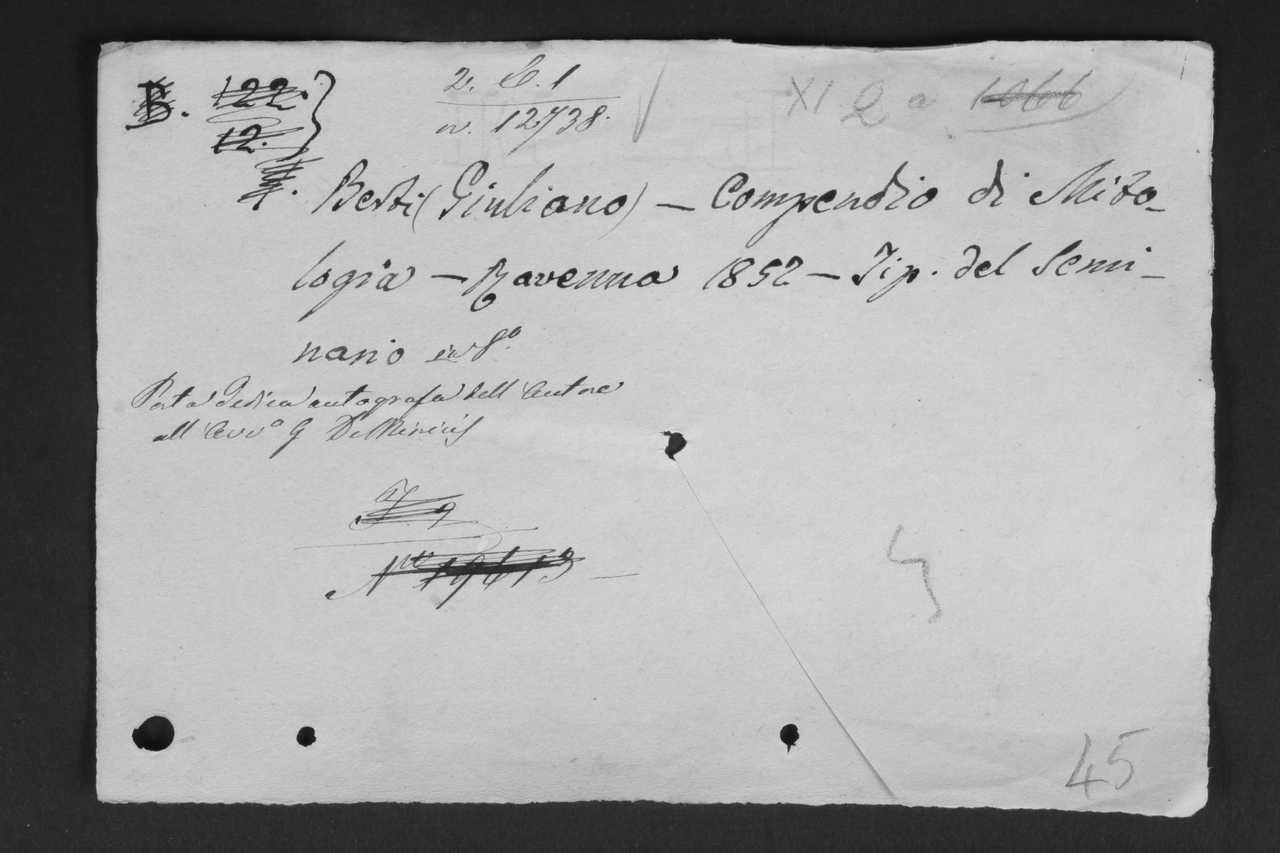 B. 122.
12.
2. C. 1
n. 12738.
XI Q a 1066
Berti (Giuliano) — Compendio di Mito-
logia — Ravenna 1852 — Tip. del Semi-
nario in 8°
Porta dedica autografa dell'Autore
all'Avv° G De Minicis
N.ro 19613 —
45